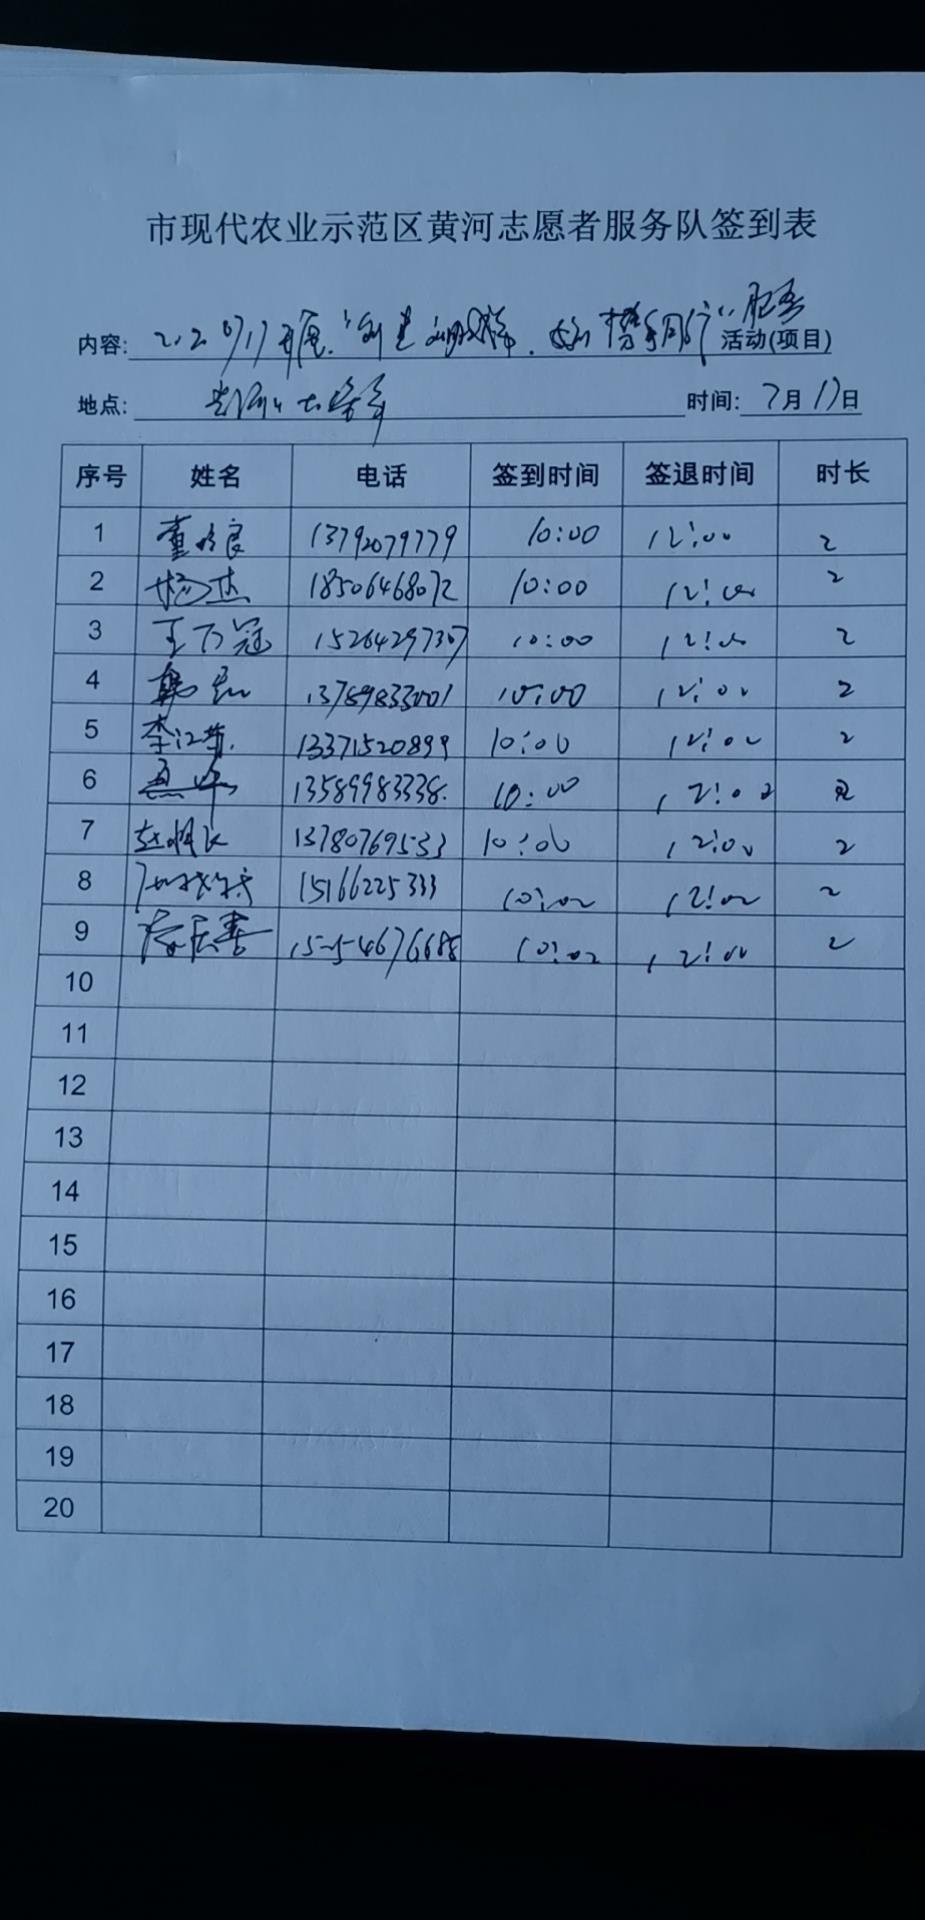 市现代农业示范区黄河志愿者服务队签到表
内容: 开展"创建文明城市 携手同行" 志愿 活动(项目)
地点: 时间: 7月17日
序号 姓名 电话 签到时间 签退时间 时长
1 董 良 13792079779 10:00 12:00 2
2 杨杰 18506468072 10:00 12:00 2
3 王万冠 15264297307 10:00 12:00 2
4 韩 13789833001 10:00 12:00 2
5 李江 13371520899 10:00 12:00 2
6 13589983338 10:00 12:00 2
7 赵明 13780769533 10:00 12:00 2
8 15166225333 10:00 12:00 2
9 15554676688 10:00 12:00 2
10
11
12
13
14
15
16
17
18
19
20